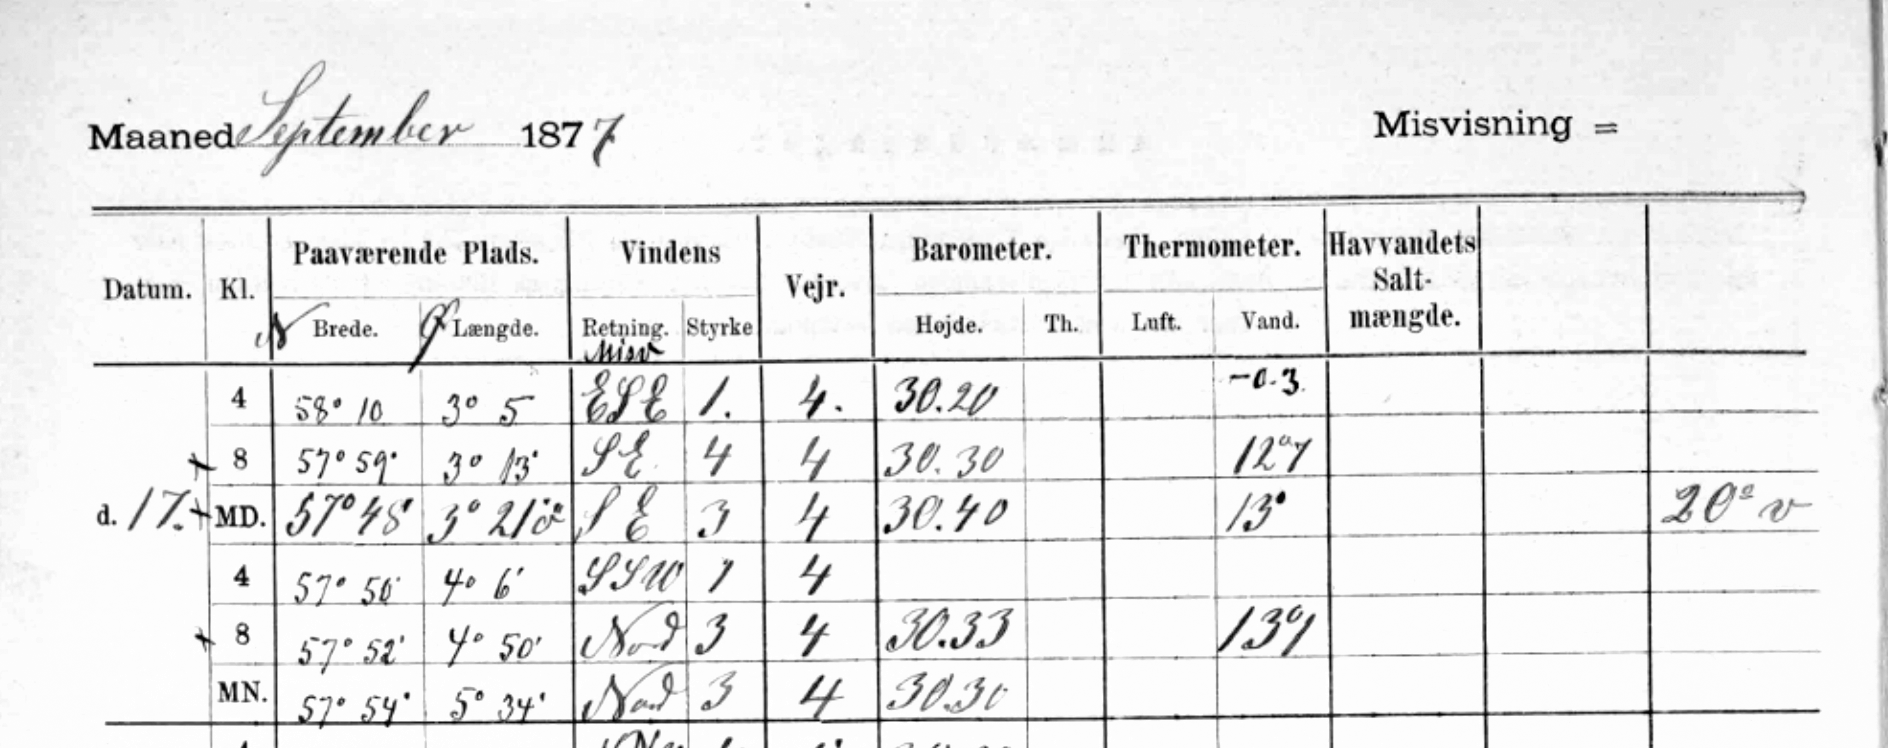 Maaned September 1877 Misvisning =
Datum. Kl. Paaværende Plads. Vindens Vejr. Barometer. Thermometer. Havvandets Salt-mængde.
N Brede. Ø Længde. Retning. Styrke Højde. Th. Luft. Vand.
Misv
4 58° 10 3° 5 ESE 1. 4. 30.20 -0.3.
8 57° 59' 3° 13' SE 4 4 30.30 12°7
d. 17. MD. 57° 48' 3° 21' Ø SE 3 4 30.40 13° 20° v
4 57° 50' 4° 6' SSW 1 4
8 57° 52' 4° 50' Nord 3 4 30.33 13°1
MN. 57° 54' 5° 34' Nord 3 4 30.30